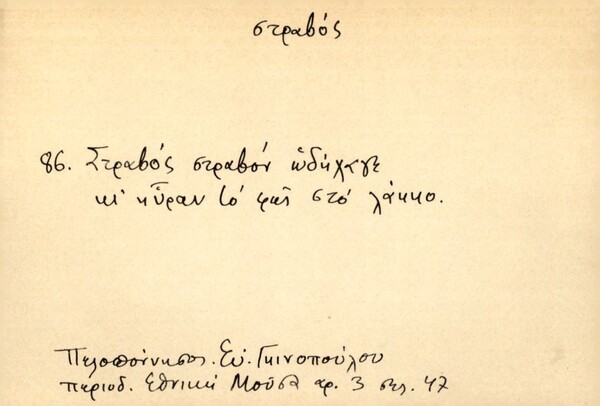 στραβός
86. Στραβός στραβόν ὡδήγαγε
κι' ηὗραν τό φῶς στό λάκκο.
Πελοπόννησος. Εὐ. Γκινοπούλου
περιοδ. Εθνική Μούσα αρ. 3 σελ. 47